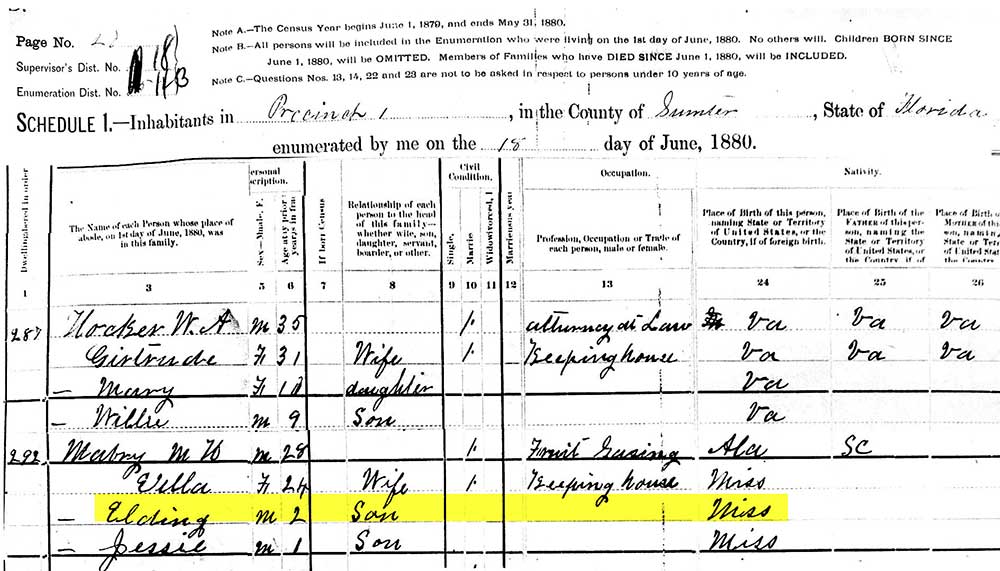 Note A.—The Census Year begins June 1, 1879, and ends May 31, 1880.
Page No.
Note B.—All persons will be included in the Enumeration who were living on the 1st day of June, 1880. No others will. Children BORN SINCE
June 1, 1880, will be OMITTED. Members of Families who have DIED SINCE June 1, 1880, will be INCLUDED.
Supervisor's Dist. No.
Enumeration Dist. No.
Note C.—Questions Nos. 13, 14, 22 and 23 are not to be asked in respect to persons under 10 years of age.
SCHEDULE 1.—Inhabitants in Precinct 1, in the County of Sumter, State of Florida
enumerated by me on the 18 day of June, 1880.
Dwelling
The Name of each Person whose place of abode, on 1st day of June, 1880, was in this family.
ersonal
Relationship of each person to the head of this family—whether wife, son, daughter, servant, boarder, or other.
Civil Condition.
Single,
Marrie
Occupation.
Profession, Occupation or Trade of each person, male or female.
Nativity.
Place of Birth of this person, naming State or Territory of United States, or the Country, if of foreign birth.
Place of Birth of the FATHER of this per- son, naming the State or Territory of United States, or the Country if of
Place of Birth of the MOTHER of this son, naming State or Terr of United Stat the Country
1 3 5 6 7 8 9 10 11 12 13 24 25 26
287 Hocker W. A M 35 / attorney at Law Va Va Va
Girtrude F 31 Wife / Keeping house Va Va Va
— Mary F daughter Va
— Willie M 9 Son Va
292 Mabry M H M 28 / Fruit Ala SC
Ella F 24 Wife / Keeping house Miss
— Elding M 2 Son Miss
— Jessie M 1 Son Miss